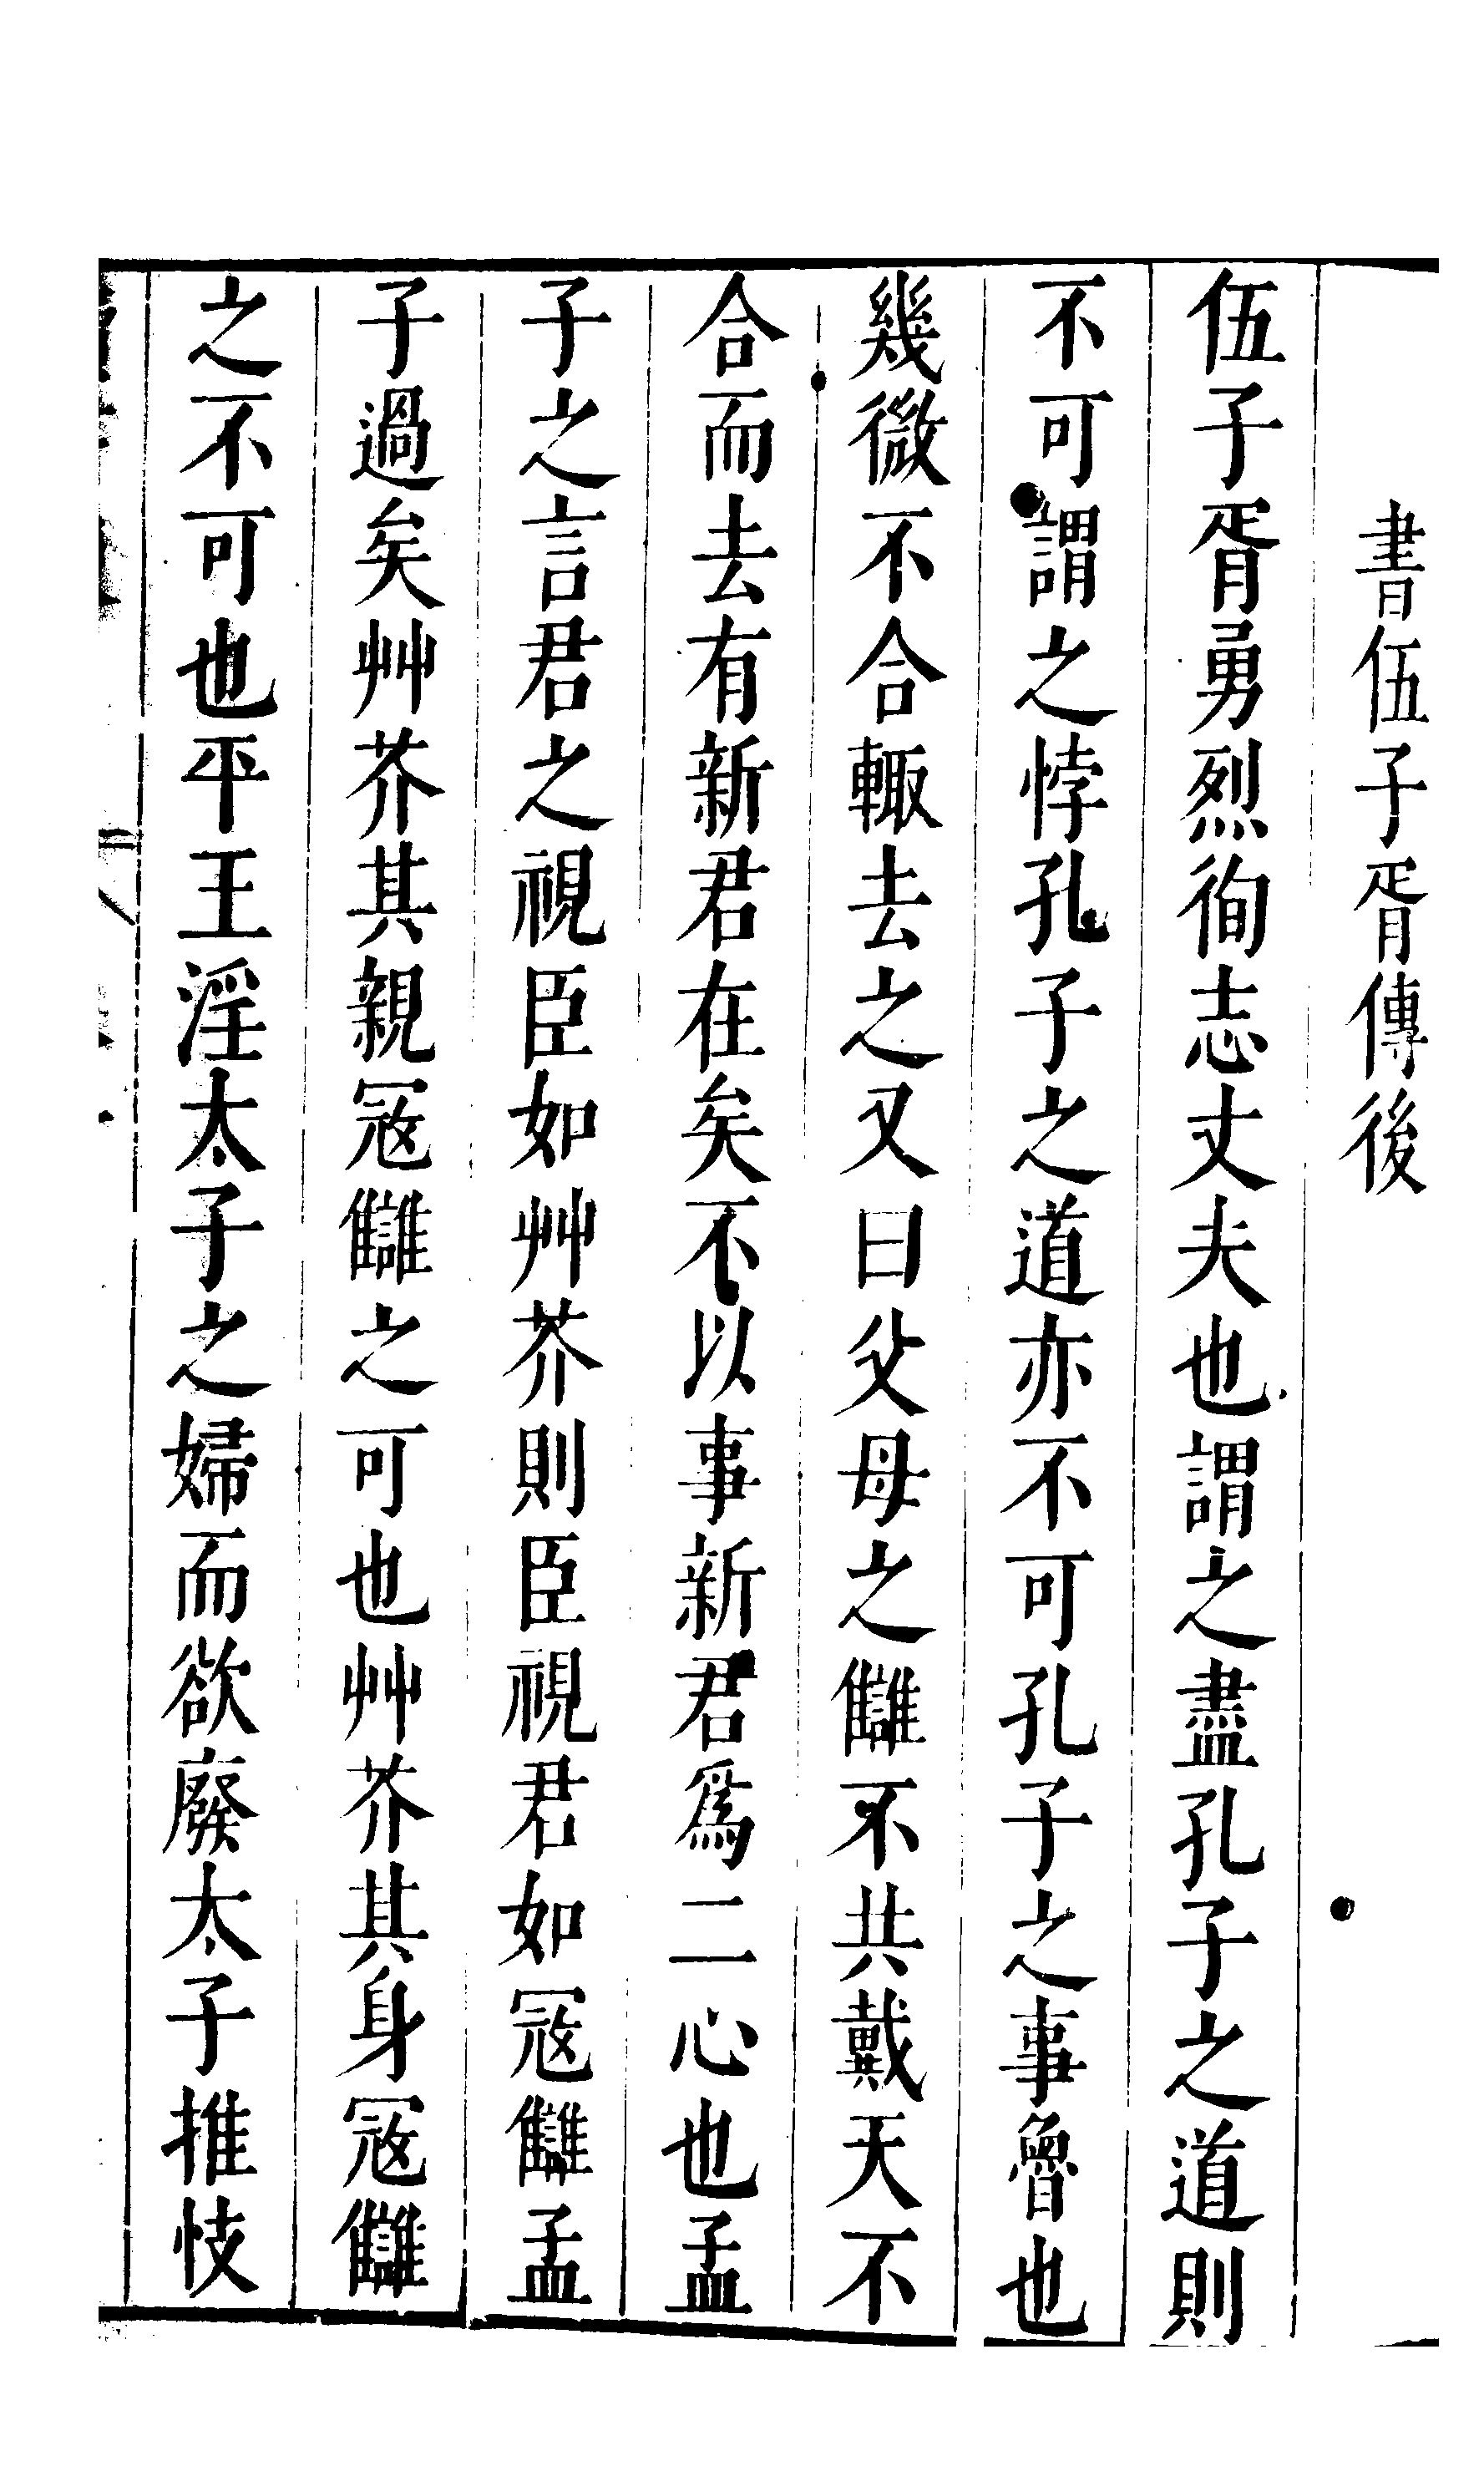 書伍子胥傳後
伍子胥勇烈徇志丈夫也謂之盡孔子之道則
不可謂之悖孔子之道亦不可孔子之事魯也
幾微不合輙去之又曰父母之讎不共戴天不
合而去有新君在矣不以事新君爲二心也孟
子之言君之視臣如艸芥則臣視君如寇讎孟
子過矣艸芥其親寇讎之可也艸芥其身寇讎
之不可也平王淫太子之婦而欲廢太子推忮